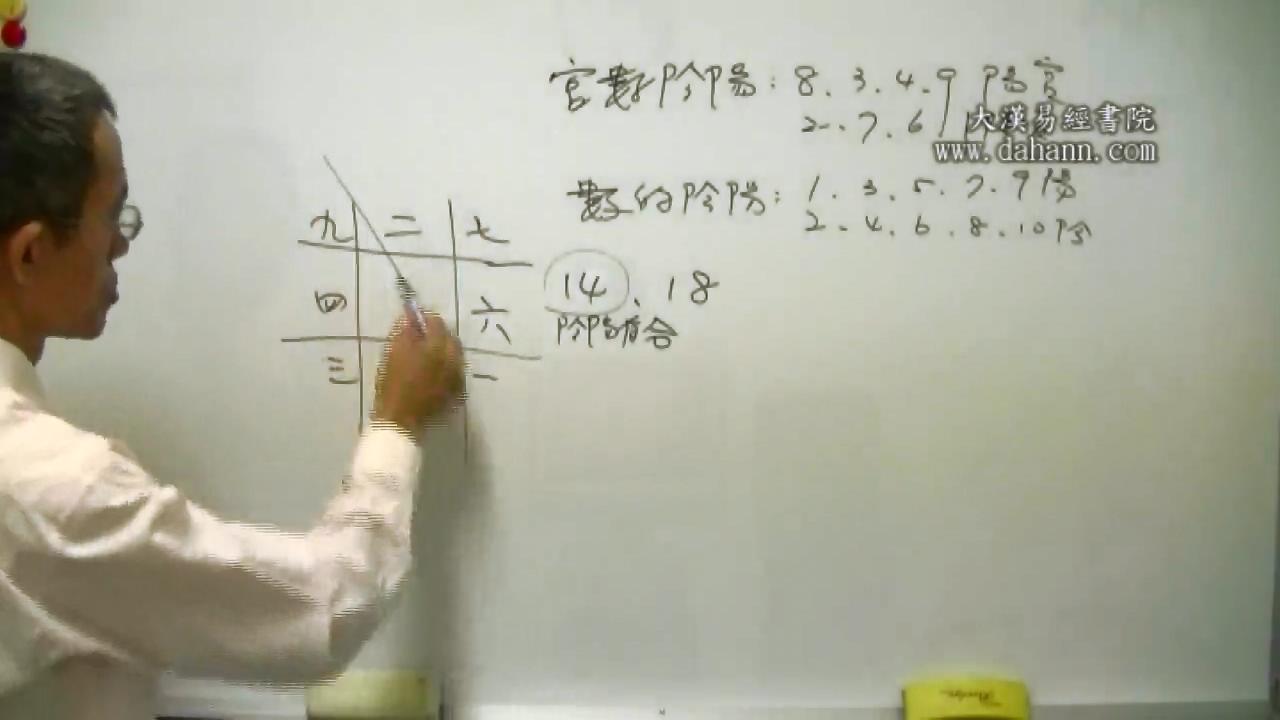 宮數阴陽：8、3、4、9 陽宮
2、7、6、1
大漢易經書院
www.dahann.com
數的阴陽：1、3、5、7、9陽
2、4、6、8、10阴
九 二 七
四 六
三 一
14、18
阴陽有合